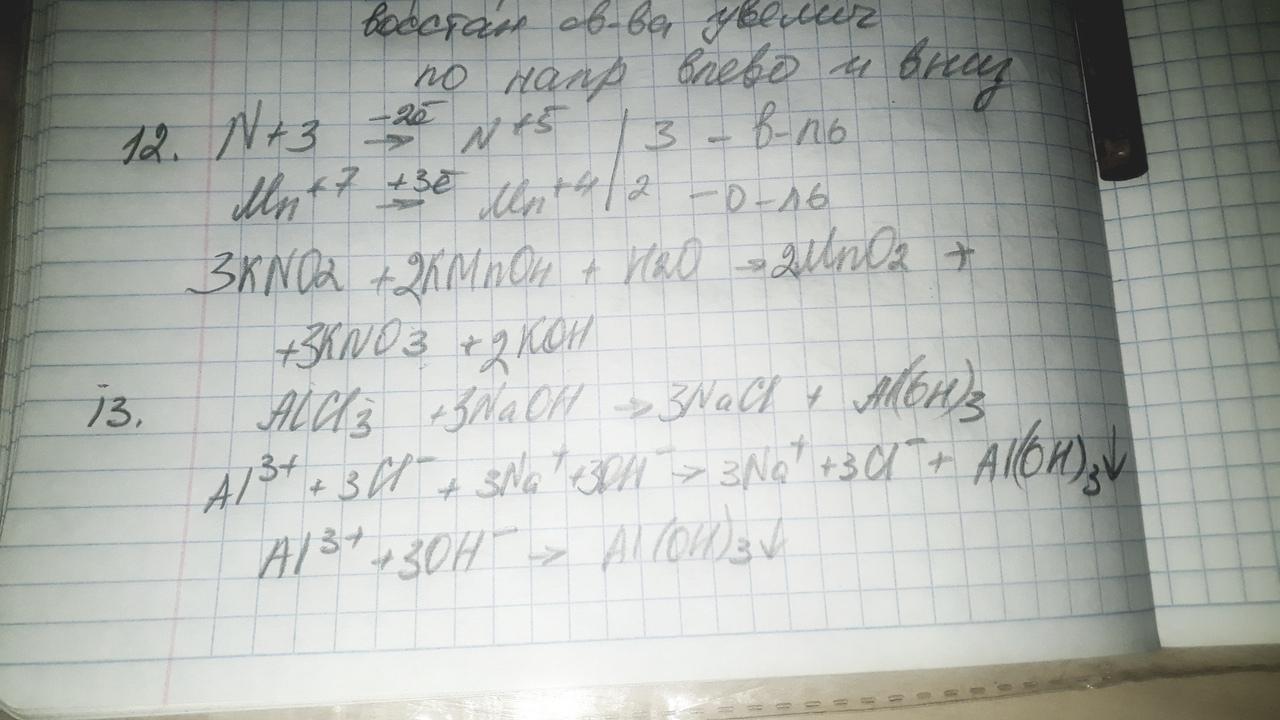 восстан св-ва увелич
по напр влево и вниз
12. N+3 -2ē → N+5 | 3 - в-ль
Mn+7 +3ē → Mn+4 | 2 - о-ль
3KNO2 + 2KMnO4 + H2O → 2MnO2 +
+3KNO3 + 2KOH
13. AlCl3 + 3NaOH → 3NaCl + Al(OH)3
Al3+ + 3Cl- + 3Na+ + 3OH- → 3Na+ + 3Cl- + Al(OH)3↓
Al3+ + 3OH- → Al(OH)3↓